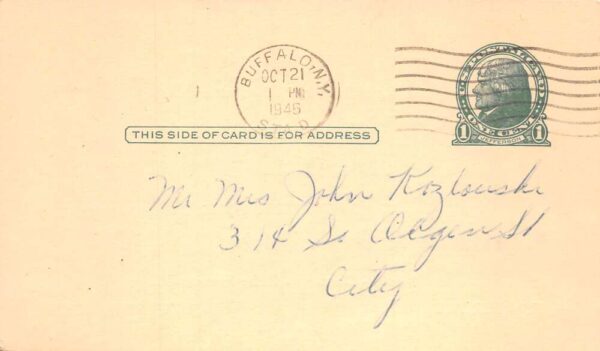 BUFFALO, N.Y.
OCT 21
1 PM
1946
STA. D
U.S. POSTAL CARD
1 ONE CENT 1
JEFFERSON
THIS SIDE OF CARD IS FOR ADDRESS
Mr Mrs John Kozlowski
314 So Ogden St
City